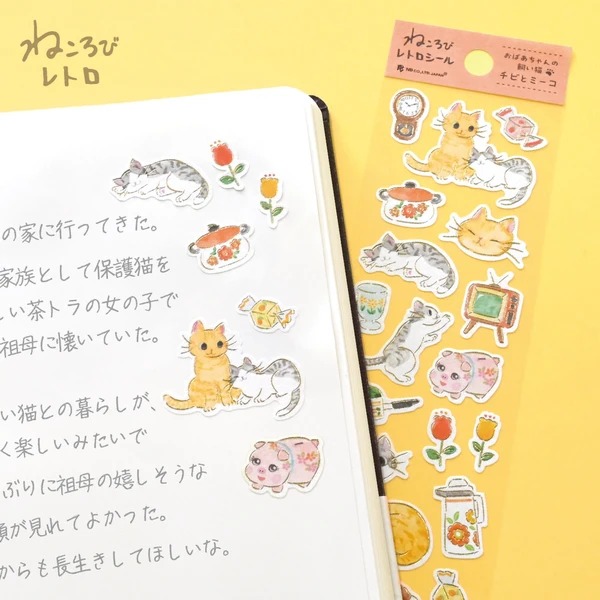 ねころび
レトロ
ねころび
レトロシール
NB CO.,LTD. JAPAN
おばあちゃんの
飼い猫
チビとミーコ
の家に行ってきた。
家族として保護猫を
しい茶トラの女の子で
祖母に懐いていた。
い猫との暮らしが、
く楽しいみたいで
ぶりに祖母の嬉しそうな
顔が見れてよかった。
からも長生きしてほしいな。